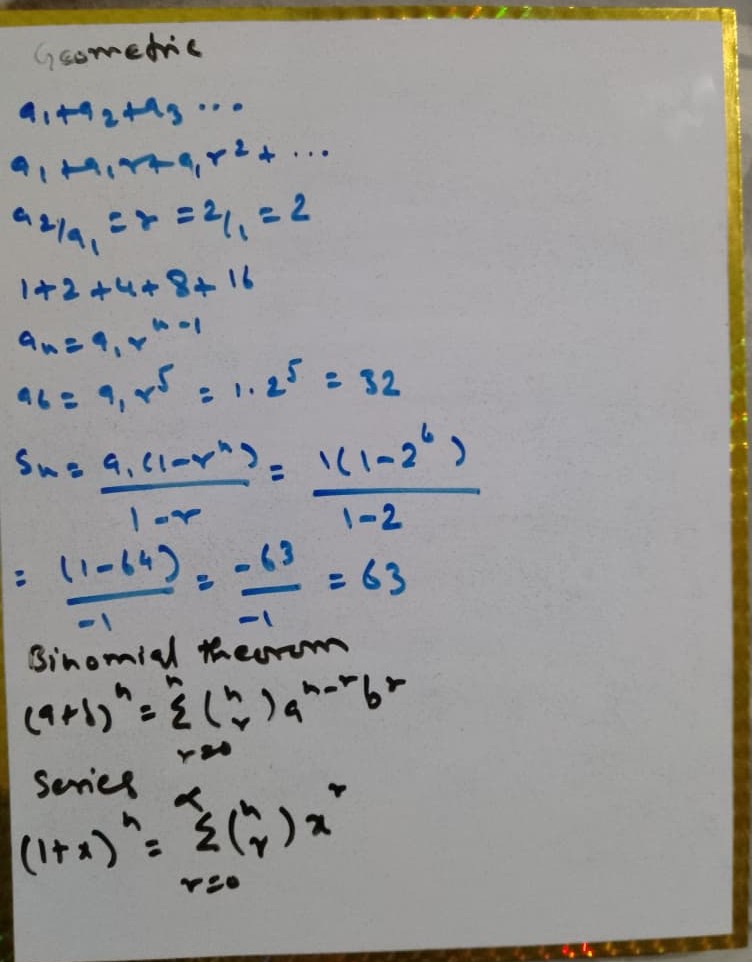 Geometric
a₁+a₂+a₃ ...
a₁+a₁r+a₁r²+ ...
a₂/a₁ = r = 2/1 = 2
1+2+4+8+16
aₙ = a₁rⁿ⁻¹
a₆ = a₁r⁵ = 1.2⁵ = 32
Sₙ = a₁(1-rⁿ)/(1-r) = 1(1-2⁶)/(1-2)
= (1-64)/-1 = -63/-1 = 63
Binomial theorem
(a+b)ⁿ = Σ_{r=0}^{n} (n r) aⁿ⁻ʳbʳ
Series
(1+x)ⁿ = Σ_{r=0}^{∝} (n r) xʳ